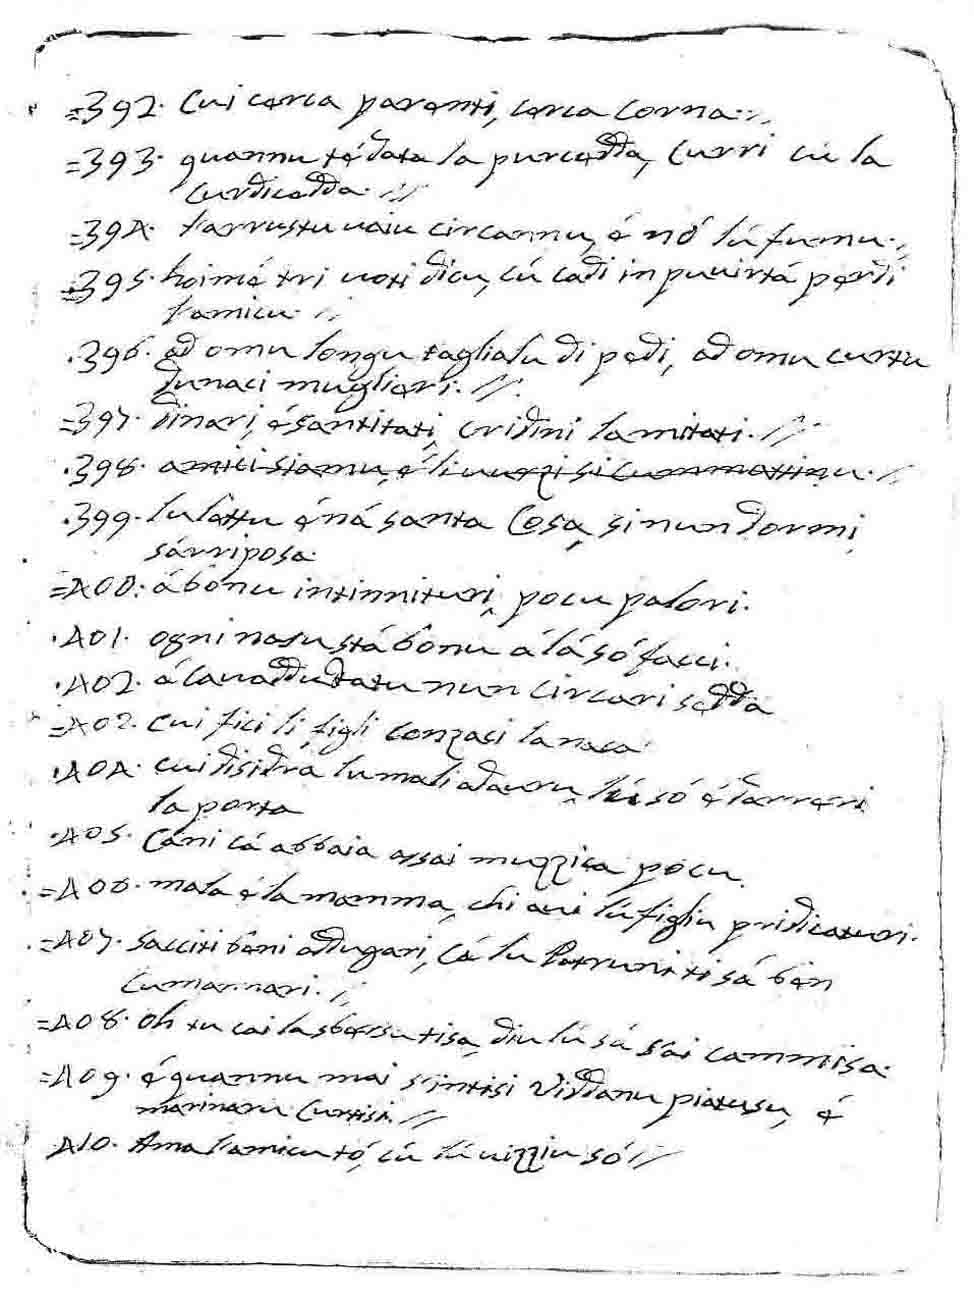 =392. Cui cerca parenti, cerca corna.//
=393. quannu té data la purcedda, curri cú la
curdicedda. //
=394. l'arrustu uaiu circannu, é nó lú fumu.//
=395. hoimé tri uoti dicu, cú cadi in puuirtá perdi
l'amicu. //
.396. ad omu longu tagliaʃu di pedi, ad omu curtu
dunaci muglieri. //.
=397. dinari, é santitati, cridini la mitati. //
.398. amici siamu, é li uurzi si cummattinu. //
.399. lu lettu é ná santa Cosa, si nun dormi
s'arriposa.
=400. á bonu intinnituri, pocu palori.
.401. ogni nasu stá bonu á lá só facci.
.402. á cauaddu datu nun circari sedda
=402. cui fici li figli conzaci la naca
.404. cui disidra lu mali d'autru, lú só é darreri
la porta
.405. Cani cá abbaia assai muzzica pocu.
=406. mala é la mamma, chi aui lú figliu pridicaturi.
=407. sacciti beni addugari, cá lu Patruni ti sá ben
cumannari. //
=408. oh tu cai la sberʃa tisa, diu lú sá s'ai cammisa.
=409. é quannu mai s'intisi Viddanu piatusu, é
marinaru Curtisi. //
.410. Ama l'amicu tó, cú lú uizziu só //